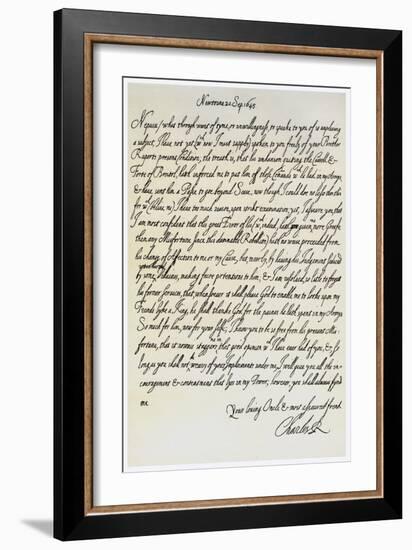 Newtoune 20 Sep: 1645
Nepueu, what through wants of tyme, or unwillingness, to speake to you of so unpleasing
a subject, I have not yet (w^ch now I must supply) spoken to you freely of your Brother
Ruperts present Condition, the treuth is, that his unhansom quitting the Castell &
Forte of Bristol, hath inforced me to put him of those Comands w^ch he had in my Armys,
& have sent him a Passe to gee beyond Seas, now though I could doe no lesse then this
for w^ch (believe me) I have too much reason, upon strikt examination, yet, I assure you, that
I am most confident that this great Error of his (w^ch, indeed, hath given me more Greefe
than any Misfortune since this damnable Rebellion) hath no waise proceeded from
his change of Affection to me or my Cause, but, meerly, by having his Judgement seduced
by some Villaines, making
friendship to him, & I am resolved, so litle to forget
his former services, that, when soever it shall please God to enable me to looke upon my
Frends lyke a King, he shall thanke God for the paines he hath spent in my Armys
So much for him, now for your selfe; I know you to be so free from his present Mis-
fortune, that it nowais staggers me in that good opinion w^ch I have ever had of you, & so
long as you shall not be weary of your Imployments under me, I will give you all the in-
couragement & contentment that lyes in my Power, however, you shall alwais fynd
me
Your loving Oncle & most asseured frend
Charles R